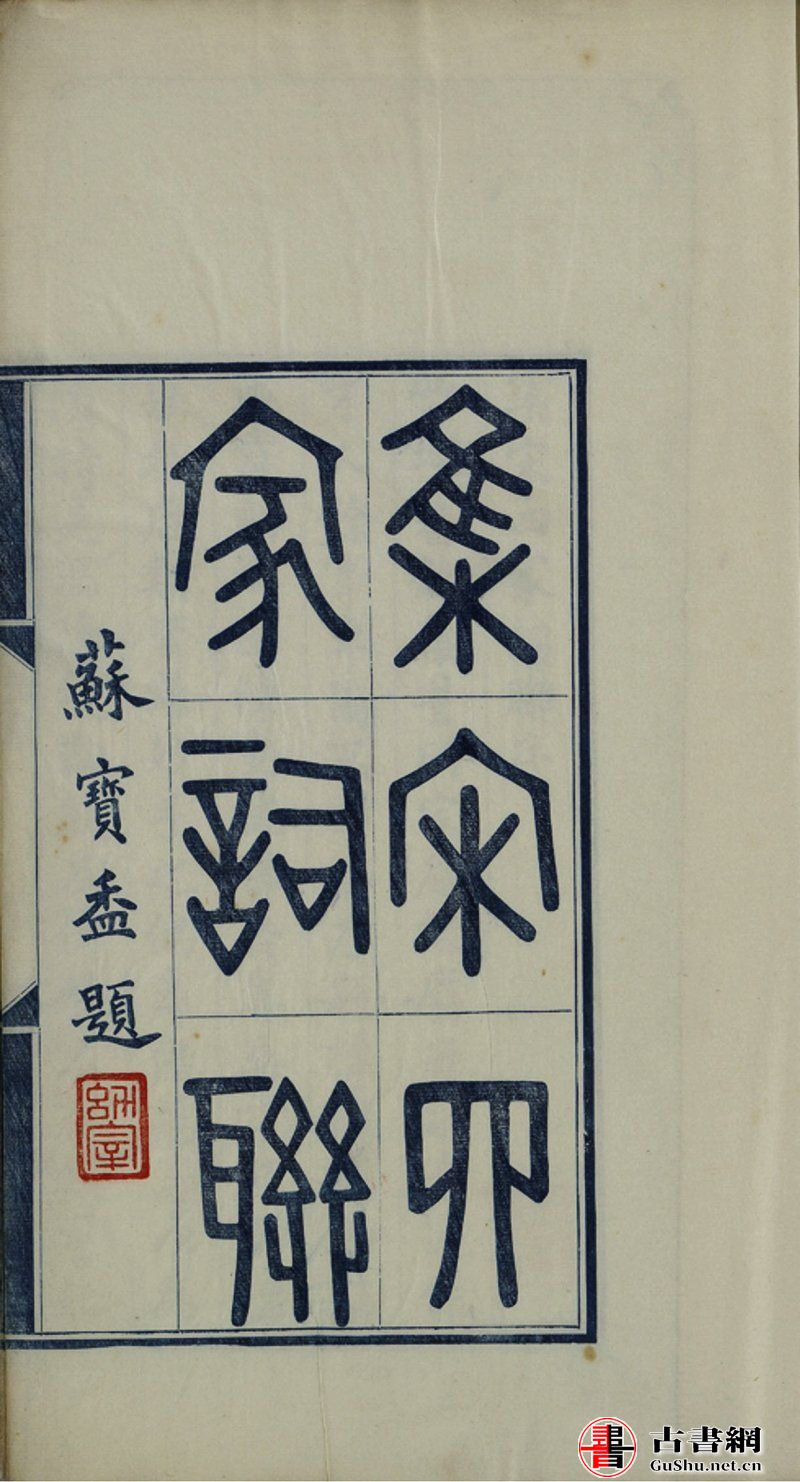 集宋四
家詞聯
蘇寶盉題
古書網
GuShu.net.cn